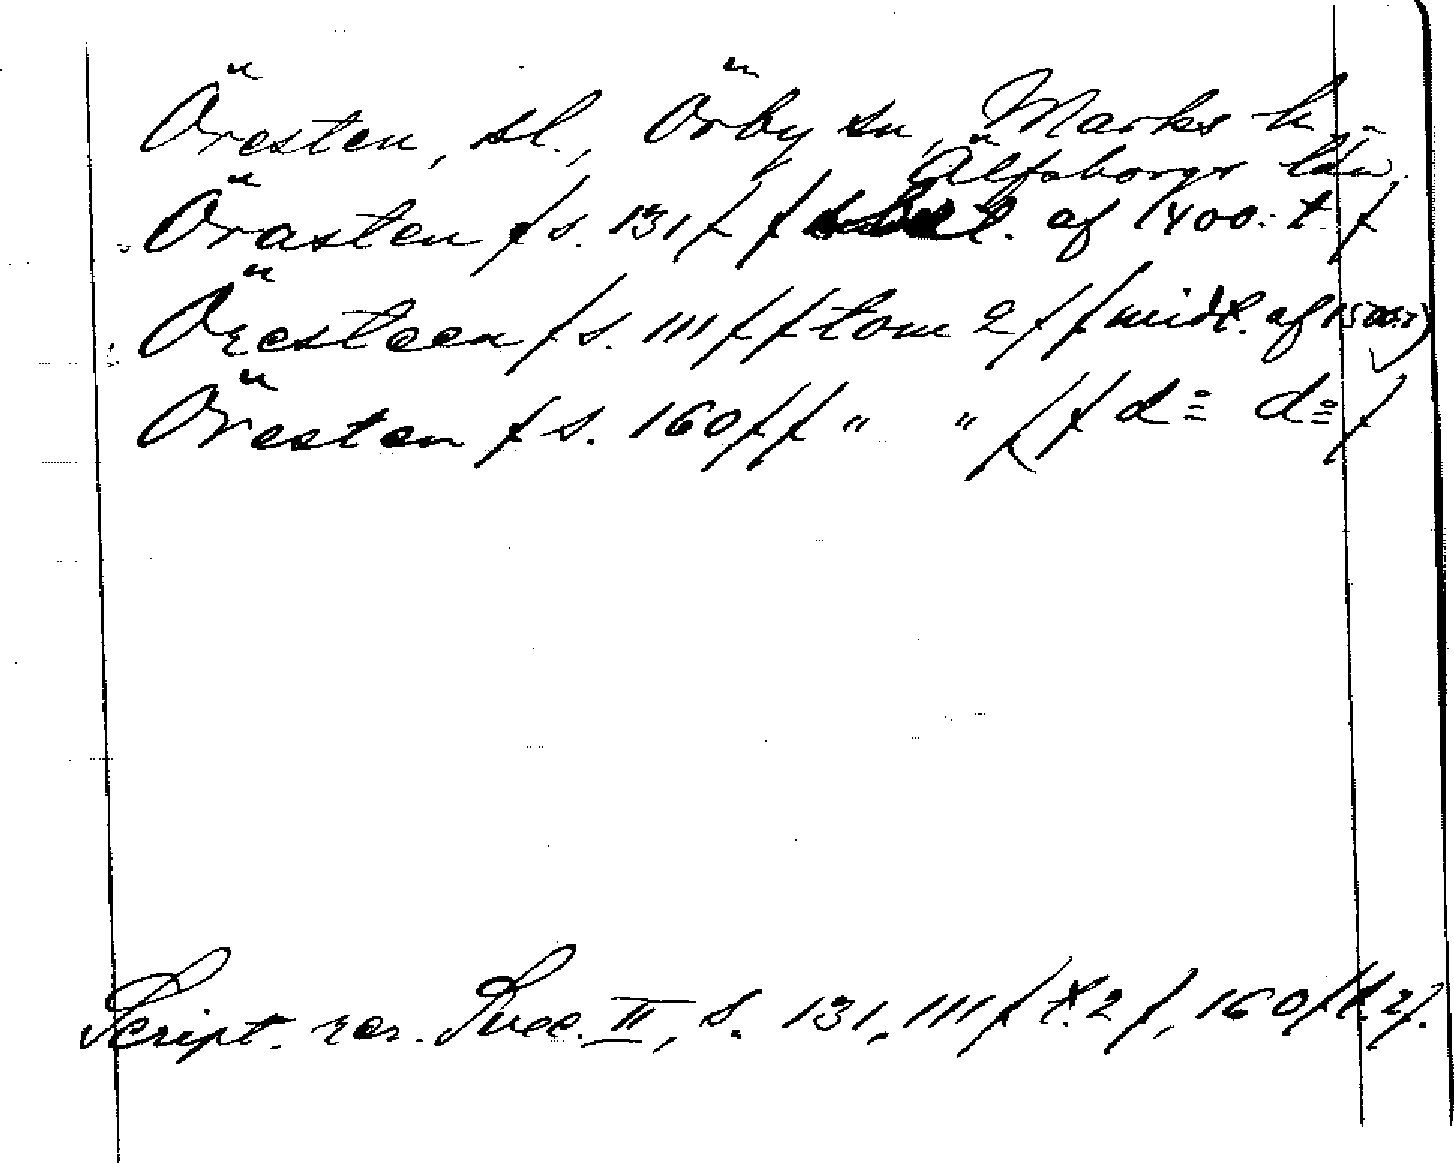 Öresten, sl., Örby sn, Marks h.,
Älfsborgs län.
Örasten (s. 131) ( sl. af 1400: t.)
Öresteen (s. 111) (tom 2) (midt. af 1500: t)
Öresten (s. 160) ( " " ) ( d:o d:o )
Script. rer. Svec. II, s. 131, 111 (t. 2), 160 (t. 2).